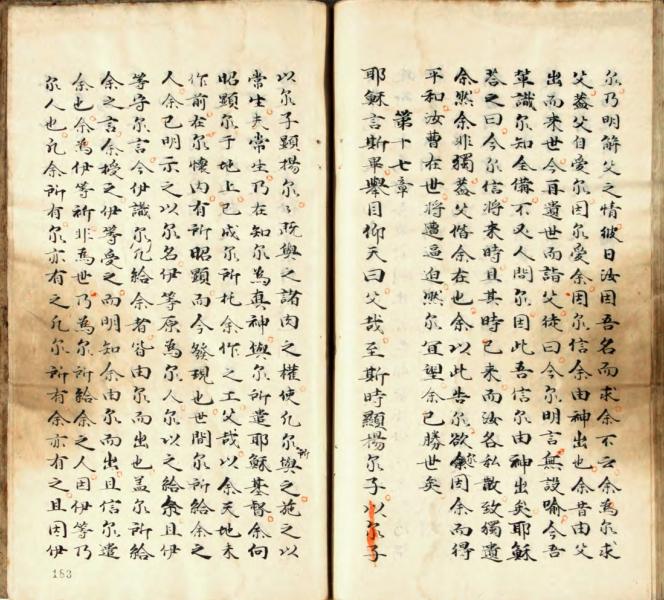 尔乃明解父之情彼日汝因吾名而求余不云余為尔求
父蓋父自爱尔因尔爱余因尔信余由神出也余昔由父
出而来世今再遺世而詣父徒曰今尔明言無設喻今吾
輩識尔知全備不又人問尔因此吾信尔由神出矣耶穌
荅之曰今尔信将来時且其時已来而汝各私散致獨遺
余然余非獨蓋父偕余在也余以此告尔欲尔因余而得
平和汝曹在世将遭逼迫然尔宜望余已勝世矣
第十七章
耶穌言斯畢舉目仰天曰父哉至斯時顯揚尔子以尔子
以尔子顯揚尔尔既與之諸肉之權使凡尔所與之施之以
常生夫常生乃在知尔為真神與尔所遣耶穌基督余向
昭顯尔于地上已成尔所托余作之工父哉以余天地未
作前在尔懷内有所昭顯而今發現也世間尔所給余之
人余已明示之以尔名伊等原為尔人尔以之給余且伊
等守尔言今伊識尔凡給余者皆由尔而出也盖尔所給
余之言余授之伊等受之而明知余由尔而出且信尔遣
余也余為伊等祈非為世乃為尔所給余之人因伊等乃
尔人也凡余所有尔亦有之凡尔所有余亦有之且因伊
183